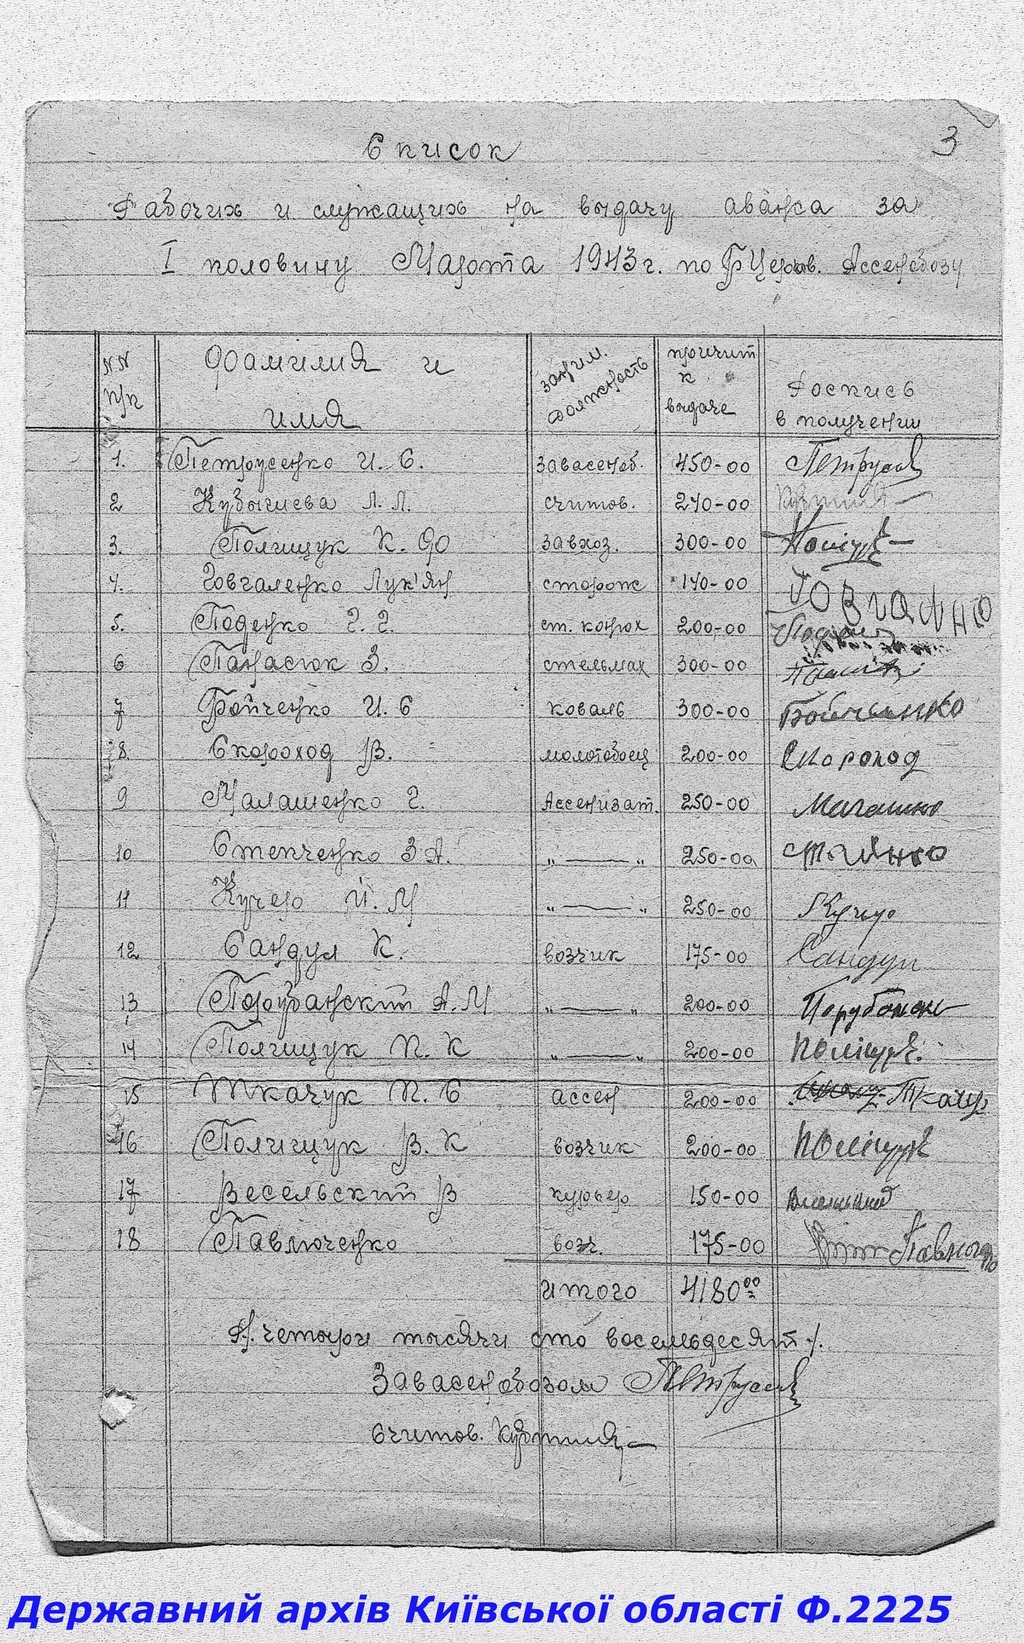 3
Список
Рабочих и служащих на выдачу аванса за
I половину Марта 1943 г. по БЦерков. Ассенобозу
NN п/п | Фамилия и имя | заним. должность | причит к выдаче | Роспись в получении
1. Петрусенко И. С. завасеноб. 450-00 Петрусе
2 л. Л. считов. 240-00
3. Полищук К. Ф завхоз. 300-00 Поліщук
4. Говгаленко Лук'ян сторож 140-00
5. Поденко Г. Г. ст. конюх 200-00
6 Панасюк З. стельмах 300-00
7 Бойченко И. С коваль 300-00 Бойченко
8. Скороход В. молотобоец 200-00 Скороход
9 Малашенко Г. Ассенизат. 250-00
10 Степченко З А. „ — „ 250-00
11 Кучер И. М „ — „ 250-00 Кучер
12 Сандул К. возчик 175-00 Сандул
13 А. М „ — „ 200-00
14 Полищук П. К „ — „ 200-00 Поліщук.
15 Ткачук П. С ассен 200-00 Ткачу
16 Полищук В. К возчик 200-00 Поліщук
17 Весельский В курьер 150-00
18 Павлюченко возч. 175-00
итого 4180 00
/. четыри тысячи сто восемьдесят /.
Завасенобозом Петрусе
Считов.
Державний архів Київської області Ф.2225